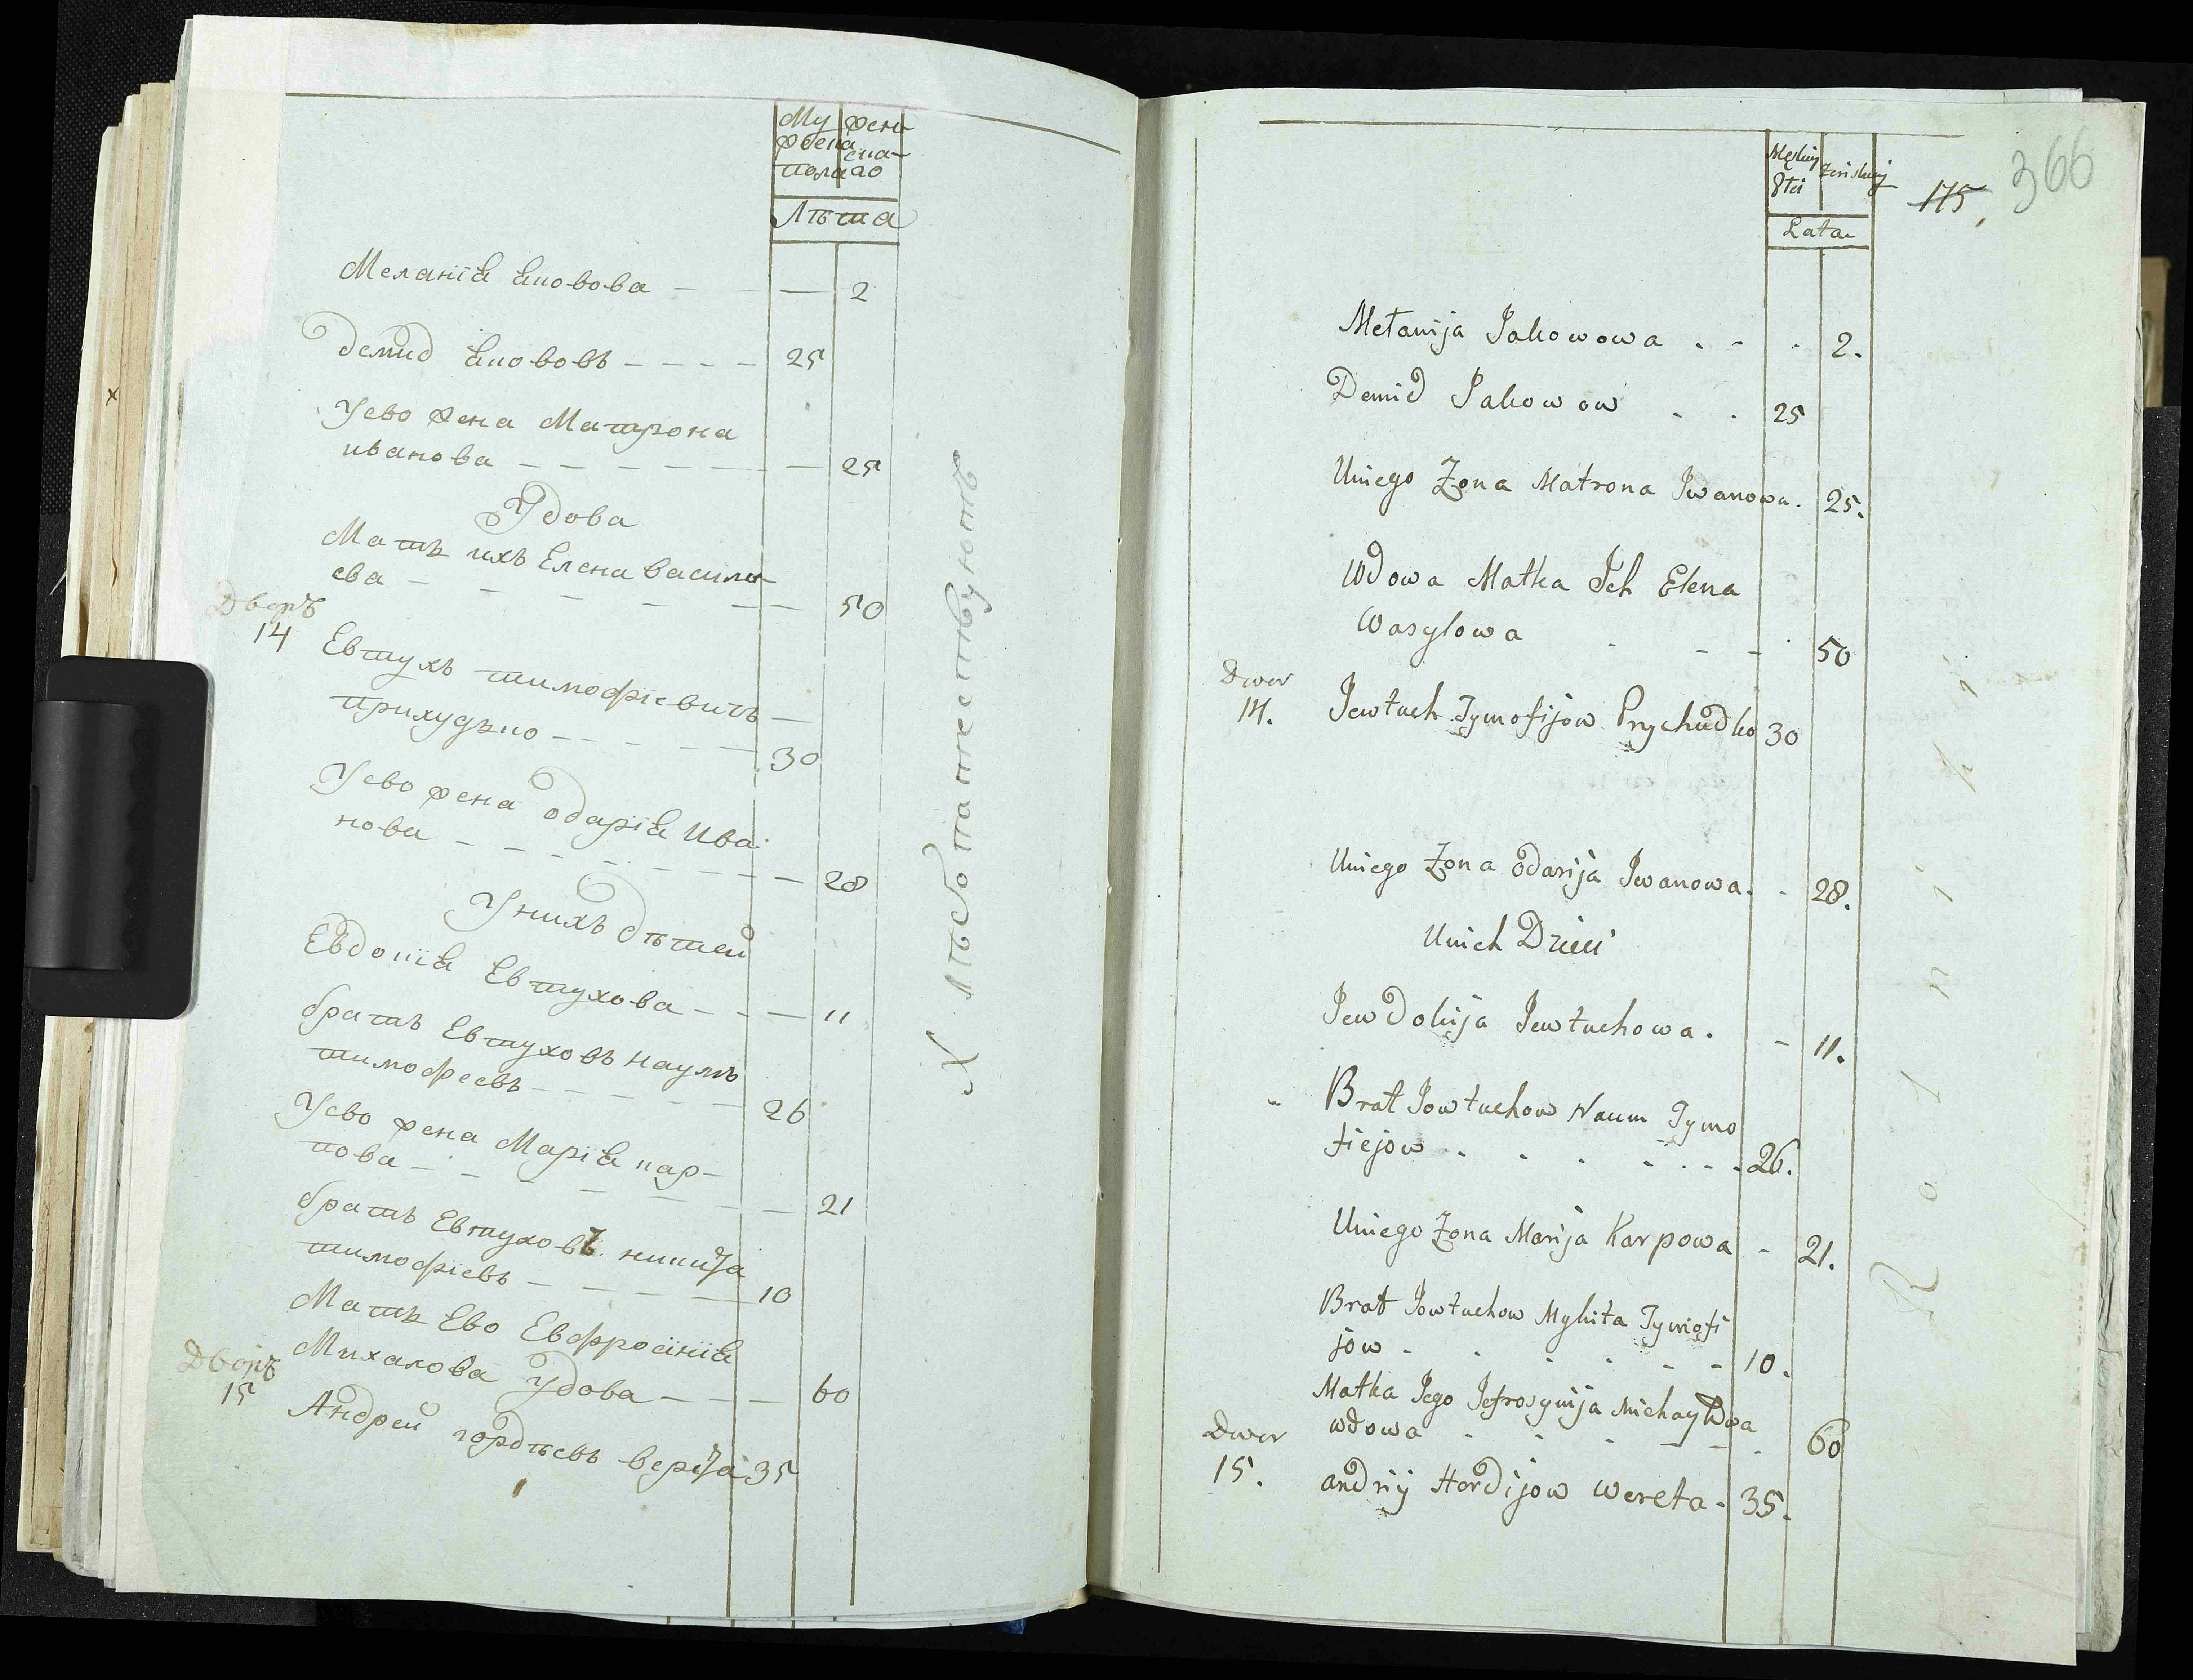 Му
жеска
пола
жен-
ска-
го
Лѣта
Меланїѧ ѧковова — — — 2
Демид ѧкововъ — — — — 25
Уево жена Матрона
иванова — — — — — — — 25
Удова
Мать ихъ Елена василь-
ева — — — — — — 50
Дворъ
14
Евтухъ тимофіевичъ —
прихудько — — — — — 30
Уево жена одарїѧ Ива
нова — — — — — — — — 28
Унихъ дѣтей
Евдокїѧ Евтухова — — — 11
братъ Евтуховъ наумъ
тимофеевъ — — — — — 26
Уево жена Марїѧ кар-
пова — — — — — — — 21
братъ Евтуховъ никита
тимофіевъ — — — — 10
Мать Ево Евфросинїѧ
Михалова Удова — — — 60
Дворъ
15
Андрей гордѣевъ верета 35
Хлѣбопашествуютъ
175
366
Męskiey
Płci
żeńskiey
Lata
Mełanija Jakowowa . - . 2.
Demid Jakowow . . 25
Uniego Żona Matrona Jwanowa. 25.
Wdowa Matka Ich Elena
Wasylowa - - - 50
Dwor
14.
Jewtuch Tymofijow Prychudko 30
Uniego Żona Odarija Jwanowa. - 28.
Unich Dzieci
Jewdokija Jewtuchowa. - 11.
Brat Jowtuchow Naum Tymo
fiejow . . . . . . . 26.
Uniego Żona Marija Karpowa - 21.
Brat Jowtuchow Mykita Tymofi
jow - . . . - - 10.
Matka Jego Jefrosynija Michayłowa
wdowa . . . — — . 60
Dwor
15.
andrij Hordijow Wereta . 35.
Rolniki